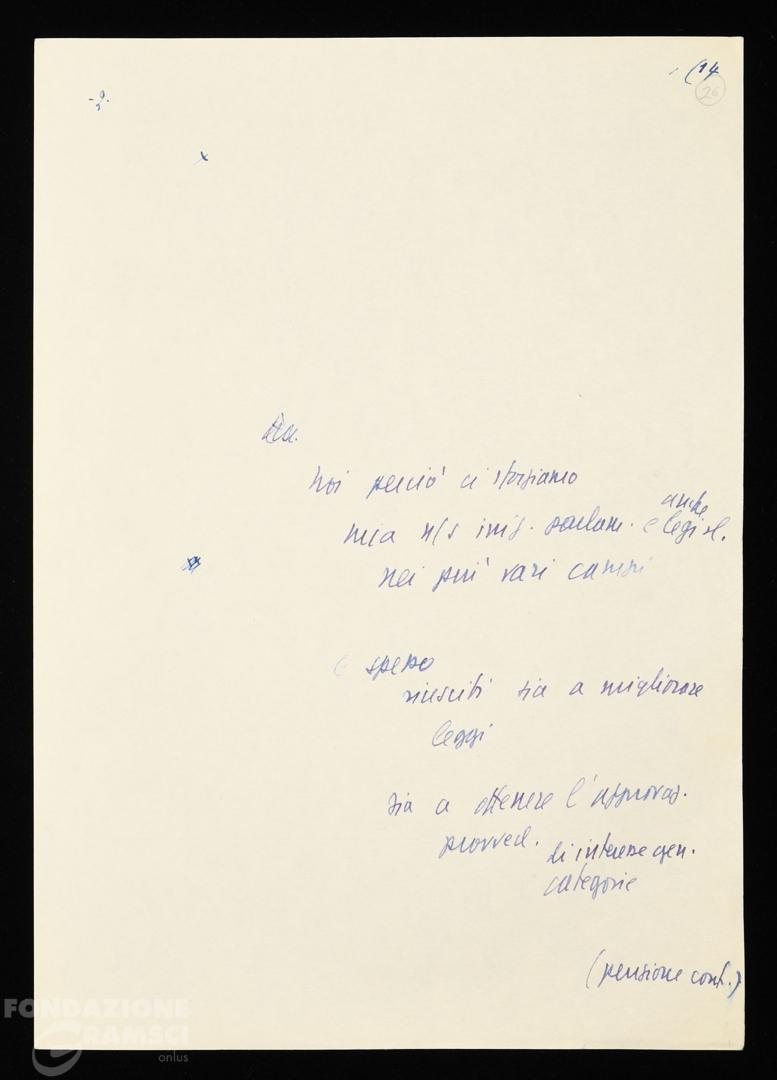 (14
26
noi perciò ci sforziamo
anche
n/s iniz. parlam. e legisl.
nei più vari campi
e spesso
riusciti sia a migliorare
leggi
sia a ottenere l'approvaz.
provved. di interesse gen.
categorie
(pensione cont.)
FONDAZIONE
GRAMSCI
onlus